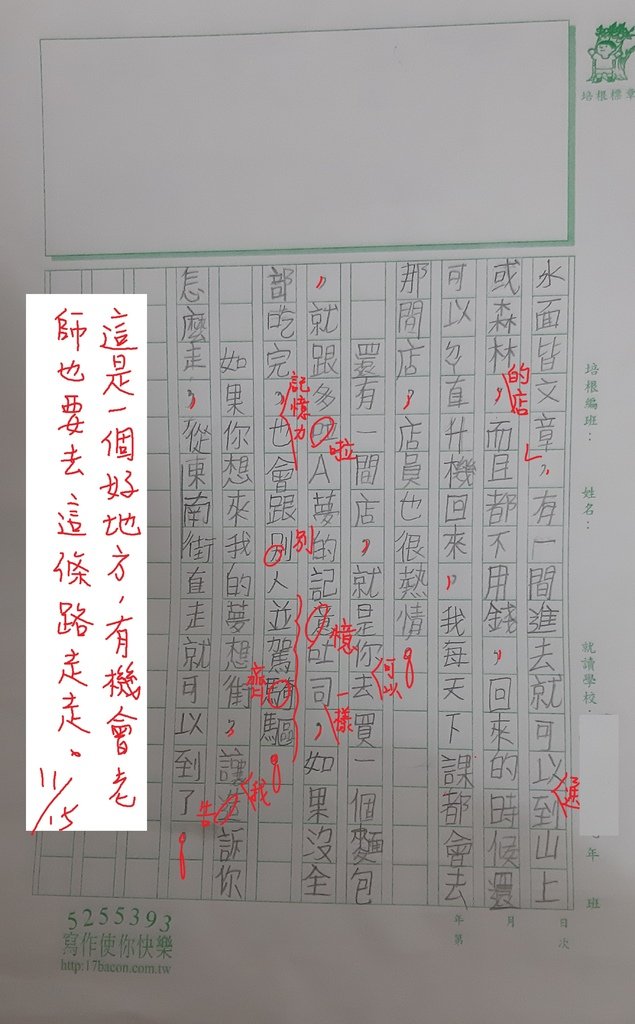 水面皆文章」,有一間進去就可以到山上
或森林,而且都不用錢,回來的時候還
可以坐直升機回來,我每天下課都會去
那間店,店員也很熱情
還有一間店,就是你去買一個麵包
,就跟多啦A夢的記憶吐司,如果沒全
部吃完,也會跟別人並駕齊驅
如果你想來我的夢想街,讓我告訴你
怎麼走,從東南街直走就可以到了
的店
通
可以
啦
憶
一樣
記憶力
別
齊
我
告
這是一個好地方,有機會老
師也要去這條路走走。
11/15
培根標章
培根編班:
姓名:
就讀學校:
年 班
年 月 日
第 次
5255393
寫作使你快樂
http:17bacon.com.tw